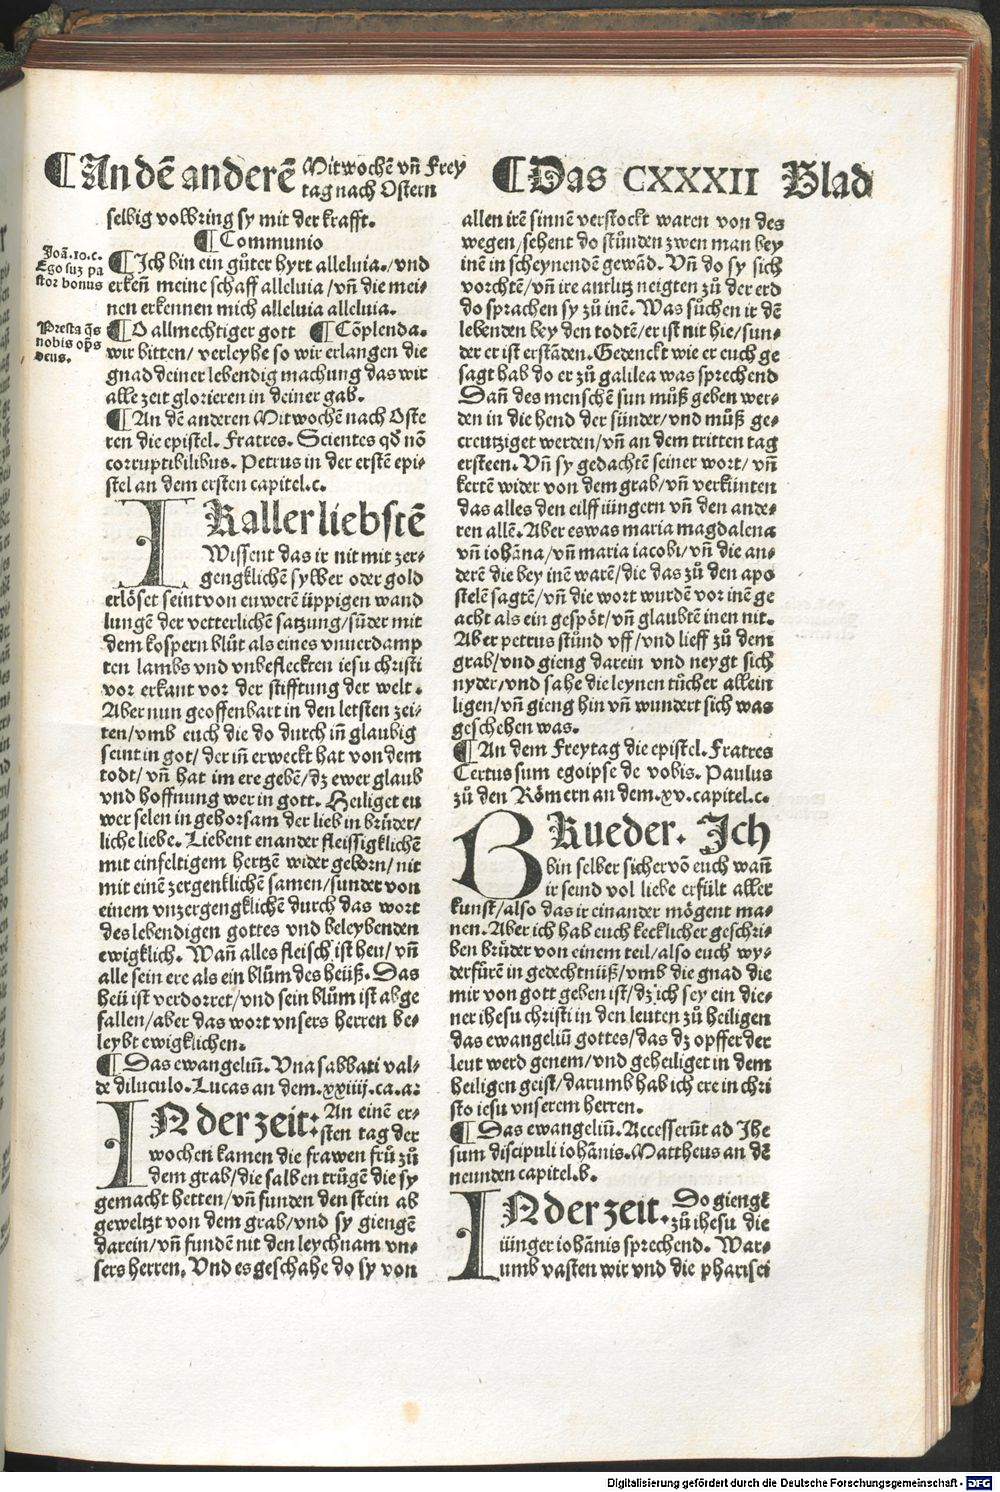 ¶An dē anderē Mitwochē vn̄ Frey
tag nach Ostern
¶Das CXXXII Blad
selbig volbring sy mit der krafft.
¶Communio
Joā.10.c.
Ego sūz pa
stor bonus
¶Ich bin ein gůter hyrt alleluia./vnd
erkeñ meine schaff alleluia/vn̄ die mei⸗
nen erkennen mich alleluia alleluia.
Presta q̄s
nobis op̄s
deus.
¶O allmechtiger gott ¶Cōplenda.
wir bitten/ verleyhe so wir erlangen die
gnad deiner lebendig machung das wir
alle zeit glorieren in deiner gab.
¶An dē anderen Mitwochē nach Oste
ren die epistel. Fratres. Scientes qđ nō
corruptibilibus. Petrus in der erstē epi⸗
stel an dem ersten capitel.c.
IR allerliebstē
Wissent das ir nit mit zer⸗
gengklichē sylber oder gold
erlöset seint von euwerē üppigen wand
lungē der vetterlichē satzung/sūder mit
dem kospern blůt als eines vnuerdamp
ten lambs vnd vnbefleckten iesu christi
vor erkant vor der stifftung der welt.
Aber nun geoffenbart in den letsten zei⸗
ten/vmb euch die do durch in̄ glaubig
seint in got/der in̄ erweckt hat von dem
todt/vn̄ hat im ere gebē/dz ewer glaub
vnd hoffnung wer in gott. Heiliget eu
wer selen in gehorsam der lieb in brüder/
liche liebe. Liebent enander fleissigklichē
mit einfeltigem hertzē wider geborn/nit
mit einē zergenklichē samen/sunder von
einem vnzergengklichē durch das wort
des lebendigen gottes vnd beleybenden
ewigklich. Wan̄ alles fleisch ist heu/vn̄
alle sein ere als ein blům des heüß. Das
heü ist verdorret/vnd sein blům ist abge
fallen/aber das wort vnsers herren be⸗
leybt ewigklichen.
¶Das ewangeliū. Vna sabbati val⸗
de diluculo. Lucas an dem.xxiiij.ca.a.
IN der zeit: An einē er⸗
sten tag der
wochen kamen die frawen frů zů
dem grab/die salben trůgē die sy
gemacht hetten/vn̄ funden den stein ab
geweltzt von dem grab/vnd sy giengē
darein/vn̄ fundē nit den leychnam vn⸗
sers herren. Vnd es geschahe do sy von
allen irē sinnē verstockt waren von des
wegen/sehent do stůnden zwen man bey
inē in scheynendē gewād. Vn̄ do sy sich
vorchtē/vn̄ ire antlitz neigten zů der erd
do sprachen sy zů inē. Was sůchen ir dē
lebenden bey den todtē/er ist nit hie/sun⸗
der er ist erstādē. Gedenckt wie er euch ge
sagt hab do er zů galilea was sprechend
Dan̄ des menschē sun můß geben wer⸗
den in die hend der sünder/vnd můß ge⸗
creutziget werden/vn̄ an dem tritten tag
ersteen. Vn̄ sy gedachtē seiner wort/ vn̄
kertē wider von dem grab/vn̄ verkünten
das alles den eilff iüngern vn̄ den ande⸗
ren allē. Aber es was maria magdalena
vn̄ iohāna/vn̄ maria iacobi/vn̄ die an⸗
derē die bey inē warē/die das zů den apo
stelē sagtē/vn̄ die wort wurdē vor inē ge
acht als ein gespöt/vn̄ glaubtē inen nit.
Aber petrus stůnd vff/vnd lieff zů dem
grab/vnd gieng darein vnd neygt sich
nyder/vnd sahe die leynen tücher allein
ligen/vn̄ gieng hin vn̄ wundert sich was
geschehen was.
¶An dem Freytag die epistel. Fratres
Certus sum ego ipse de vobis. Paulus
zů den Römern an dem.xv.capitel.c.
BRueder. Ich
bin selber sicher vō euch wan̄
ir seind vol liebe erfült aller
kunst/also das ir einander mögent ma⸗
nen. Aber ich hab euch kecklicher geschri⸗
ben brüder von einem teil/also euch wy⸗
derfürē in gedechtnüß/vmb die gnad die
mir von gott geben ist/dz ich sey ein die⸗
ner ihesu christi in den leuten zů heiligen
das ewangeliū gottes/das dz opffer der
leut werd genem/vnd geheiliget in dem
heiligen geist/darumb hab ich ere in chri
sto iesu vnserem herren.
¶Das ewangeliū. Accesserūt ad Ihe
sum discipuli iohānis. Mattheus an dē
neunden capitel.b.
IN der zeit. Do giengē
zů ihesu die
iünger iohānis sprechend. War⸗
umb vasten wir vnd die pharisei
Digitalisierung gefördert durch die Deutsche Forschungsgemeinschaft - DFG